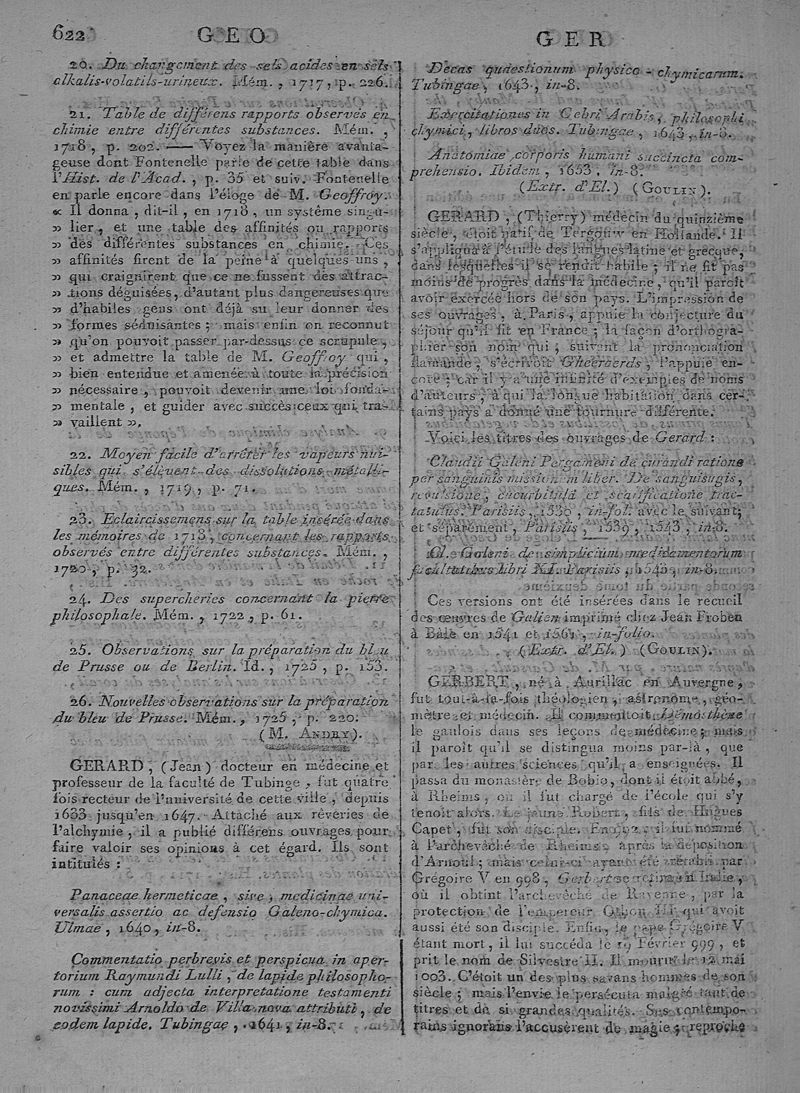 622
GEO
GER
20. Du changement des sels acides en sels
alkalis-volatils-urineux. Mém., 1717, p. 226.
21. Table de différens rapports observés en
chimie entre différentes substances. Mém.,
1718, p. 202. —— Voyez la manière avanta-
geuse dont Fontenelle parle de cette table dans
l'Hist. de l'Acad., p. 35 et suiv. Fontenelle
en parle encore dans l'éloge de M. Geoffroy.
« Il donna, dit-il, en 1718, un systême singu-
» lier, et une table des affinités ou rapports
» des différentes substances en chimie. Ces
» affinités firent de la peine à quelques uns,
» qui craignirent que ce ne fussent des attrac-
» tions déguisées, d'autant plus dangereuses que
» d'habiles gens ont déjà su leur donner des
» formes séduisantes; mais enfin on reconnut
» qu'on pouvoit passer par-dessus ce scrupule,
» et admettre la table de M. Geoffroy qui,
» bien entendue et amenée à toute la précision
» nécessaire, pouvoit devenir une loi fonda-
» mentale, et guider avec succès ceux qui tra-
» vaillent ».
22. Moyen facile d'arrêter les vapeurs nui-
sibles qui s'élèvent des dissolutions métalli-
ques. Mém., 1719, p. 71.
23. Eclaircissemens sur la table insérée dans
les mémoires de 1718, concernant les rapports
observés entre différentes substances. Mém.,
1720, p. 32.
24. Des supercheries concernant la pierre
philosophale. Mém., 1722, p. 61.
25. Observations sur la préparation du bleu
de Prusse ou de Berlin. Id., 1725, p. 153.
26. Nouvelles observations sur la préparation
du bleu de Prusse. Mém., 1725, p. 220.
(M. ANDRY).
GERARD, (Jean) docteur en médecine et
professeur de la faculté de Tubinge, fut quatre
fois recteur de l'université de cette ville, depuis
1633 jusqu'en 1647. Attaché aux rêveries de
l'alchymie, il a publié différens ouvrages pour
faire valoir ses opinions à cet égard. Ils sont
intitulés :
Panaceae hermeticae, sive, medicinae uni-
versalis assertio ac defensio Galeno-chymica.
Ulmae, 1640, in-8.
Commentatio perbrevis et perspicua in aper-
torium Raymundi Lulli, de lapide philosopho-
rum : cum adjecta interpretatione testamenti
novissimi Arnoldo de Villa nova attributi, de
eodem lapide. Tubingae, 1641, in-8.
Decas quaestionum physico-chymicarum.
Tubingae, 1643, in-8.
Exercitationes in Gebri Arabis, philosophi
chymici, libros duos. Tubingae, 1643, in-8.
Anatomiae corporis humani succincta com-
prehensio. Ibidem, 1653. in-8.
(Extr. d'El.) (GOULIN).
GERARD, (Thierry) médecin du quinzième
siècle, étoit natif de en Hollande. Il
s'appliqua à l'étude des langues latine et grecque,
dans lesquelles il se rendit habile; il ne fit pas
moins de progrès dans la médecine, qu'il paroît
avoir exercée hors de son pays. L'impression de
ses ouvrages, à Paris, appuie la conjecture du
séjour qu'il fit en France; la façon d'orthogra-
phier son nom qui, suivant la prononciation
flamande, s'écrivoit Gheeraerds, l'appuie en-
core; car il y a une infinité d'exemples de noms
d'auteurs, à qui la longue habitation dans cer-
tains pays a donné une tournure différente.
Voici les titres des ouvrages de Gerard :
Claudii Galeni Pergameni de curandi ratione
per sanguinis missionem liber. De sanguisugis,
revulsione, cucurbitula et scarificatione trac-
tatulus. Parisiis, in-fol. avec le suivant;
et séparément, Parisiis, 1539, 1543, in-8.
Cl. Galeni de simplicium medicamentorum
facultatibus libri XI. Parisiis, in-8.
Ces versions ont été insérées dans le recueil
des œuvres de Galien imprimé chez Jean Froben
à Bâle en 1541 et 1561, in-folio.
(Extr. d'El.) (GOULIN).
GERBERT, né à Aurillac en Auvergne,
fut tout-à-la-fois théologien, astronome, géo-
mètre et médecin. Il commentoit Démosthène
le gaulois dans ses leçons de médecine; mais
il paroît qu'il se distingua moins par-là, que
par les autres sciences qu'il a enseignées. Il
passa du monastère de Bobio, dont il étoit abbé,
à Rheims, où il fut chargé de l'école qui s'y
tenoit alors. Le jeune Robert, fils de Hugues
Capet, fut son disciple. En 992, il fut nommé
à l'archevêché de Rheims après la déposition
d'Arnoul; mais celui-ci ayant été rétabli par
Grégoire V en 998, Gerbert se retira en Italie,
où il obtint l'archevêché de Ravenne, par la
protection de l'empereur Othon III, qui avoit
aussi été son disciple. Enfin, le pape Grégoire V
étant mort, il lui succéda le 19 Février 999, et
prit le nom de Silvestre II. Il mourut le 12 mai
1003. C'étoit un des plus savans hommes de son
siècle; mais l'envie le persécuta malgré tant de
titres et de si grandes qualités. Ses contempo-
rains ignorans l'accusèrent de magie; reproche